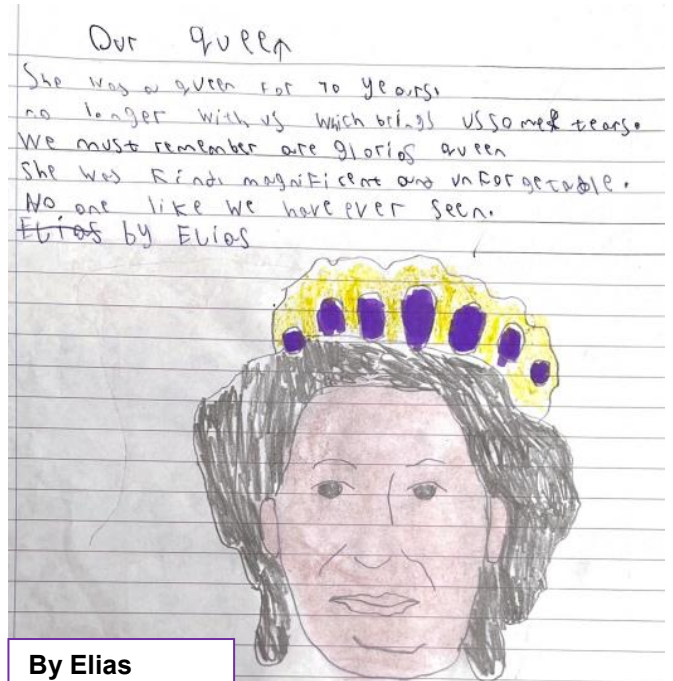 Our queen
She was a queen for 70 years.
no longer with us which brings us some tears.
We must remember are glorios queen
She was kind, magnificent and unforgetable.
No one like we have ever seen.
Elios by Elios
By Elias